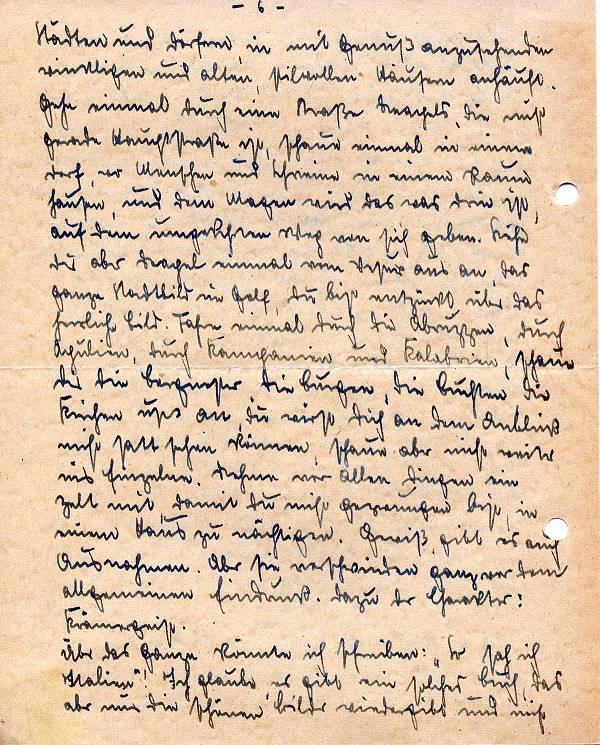 - 6 -
Städten und Dörfern, in mit Genuß anzusehenden
winkligen und alten, stilvollen Häusern anhäuft.
Gehe einmal durch eine Straße Neapels, die nicht
gerade Hauptstraße ist, schaue einmal in einem
Dorf, wo Menschen und Schweine in einem Raum
hausen, und dem Magen wird das was drin ist,
auf dem umgekehrten Weg von sich geben. Siehst
du aber Neapel einmal vom Vesuv aus an, das
ganze Stadtbild im Golf, du bist entzückt über das
herrliche Bild. Fahre einmal durch die Abruzzen, durch
Apulien, durch Kampanien und Kalabrien, schaue
dir die Bergnester die Burgen, die Buchten die
Kirchen usw an, du wirst dich an dem Anblick
nicht satt sehen können, schaue aber nicht weiter
ins Einzelne. Nehme vor allen Dingen ein
Zelt mit, damit du nicht gezwungen bist, in
einem Haus zu nächtigen. Gewiß, gibt es auch
Ausnahmen. Aber sie verschwinden ganz vor dem
allgemeinen Eindruck. Dazu der Charakter:
Krämergeist.
Über das Ganze könnte ich schreiben: „So sah ich
Italien". Ich glaube es gibt ein solches Buch, das
aber nur die schönen Bilder wiedergibt und nicht